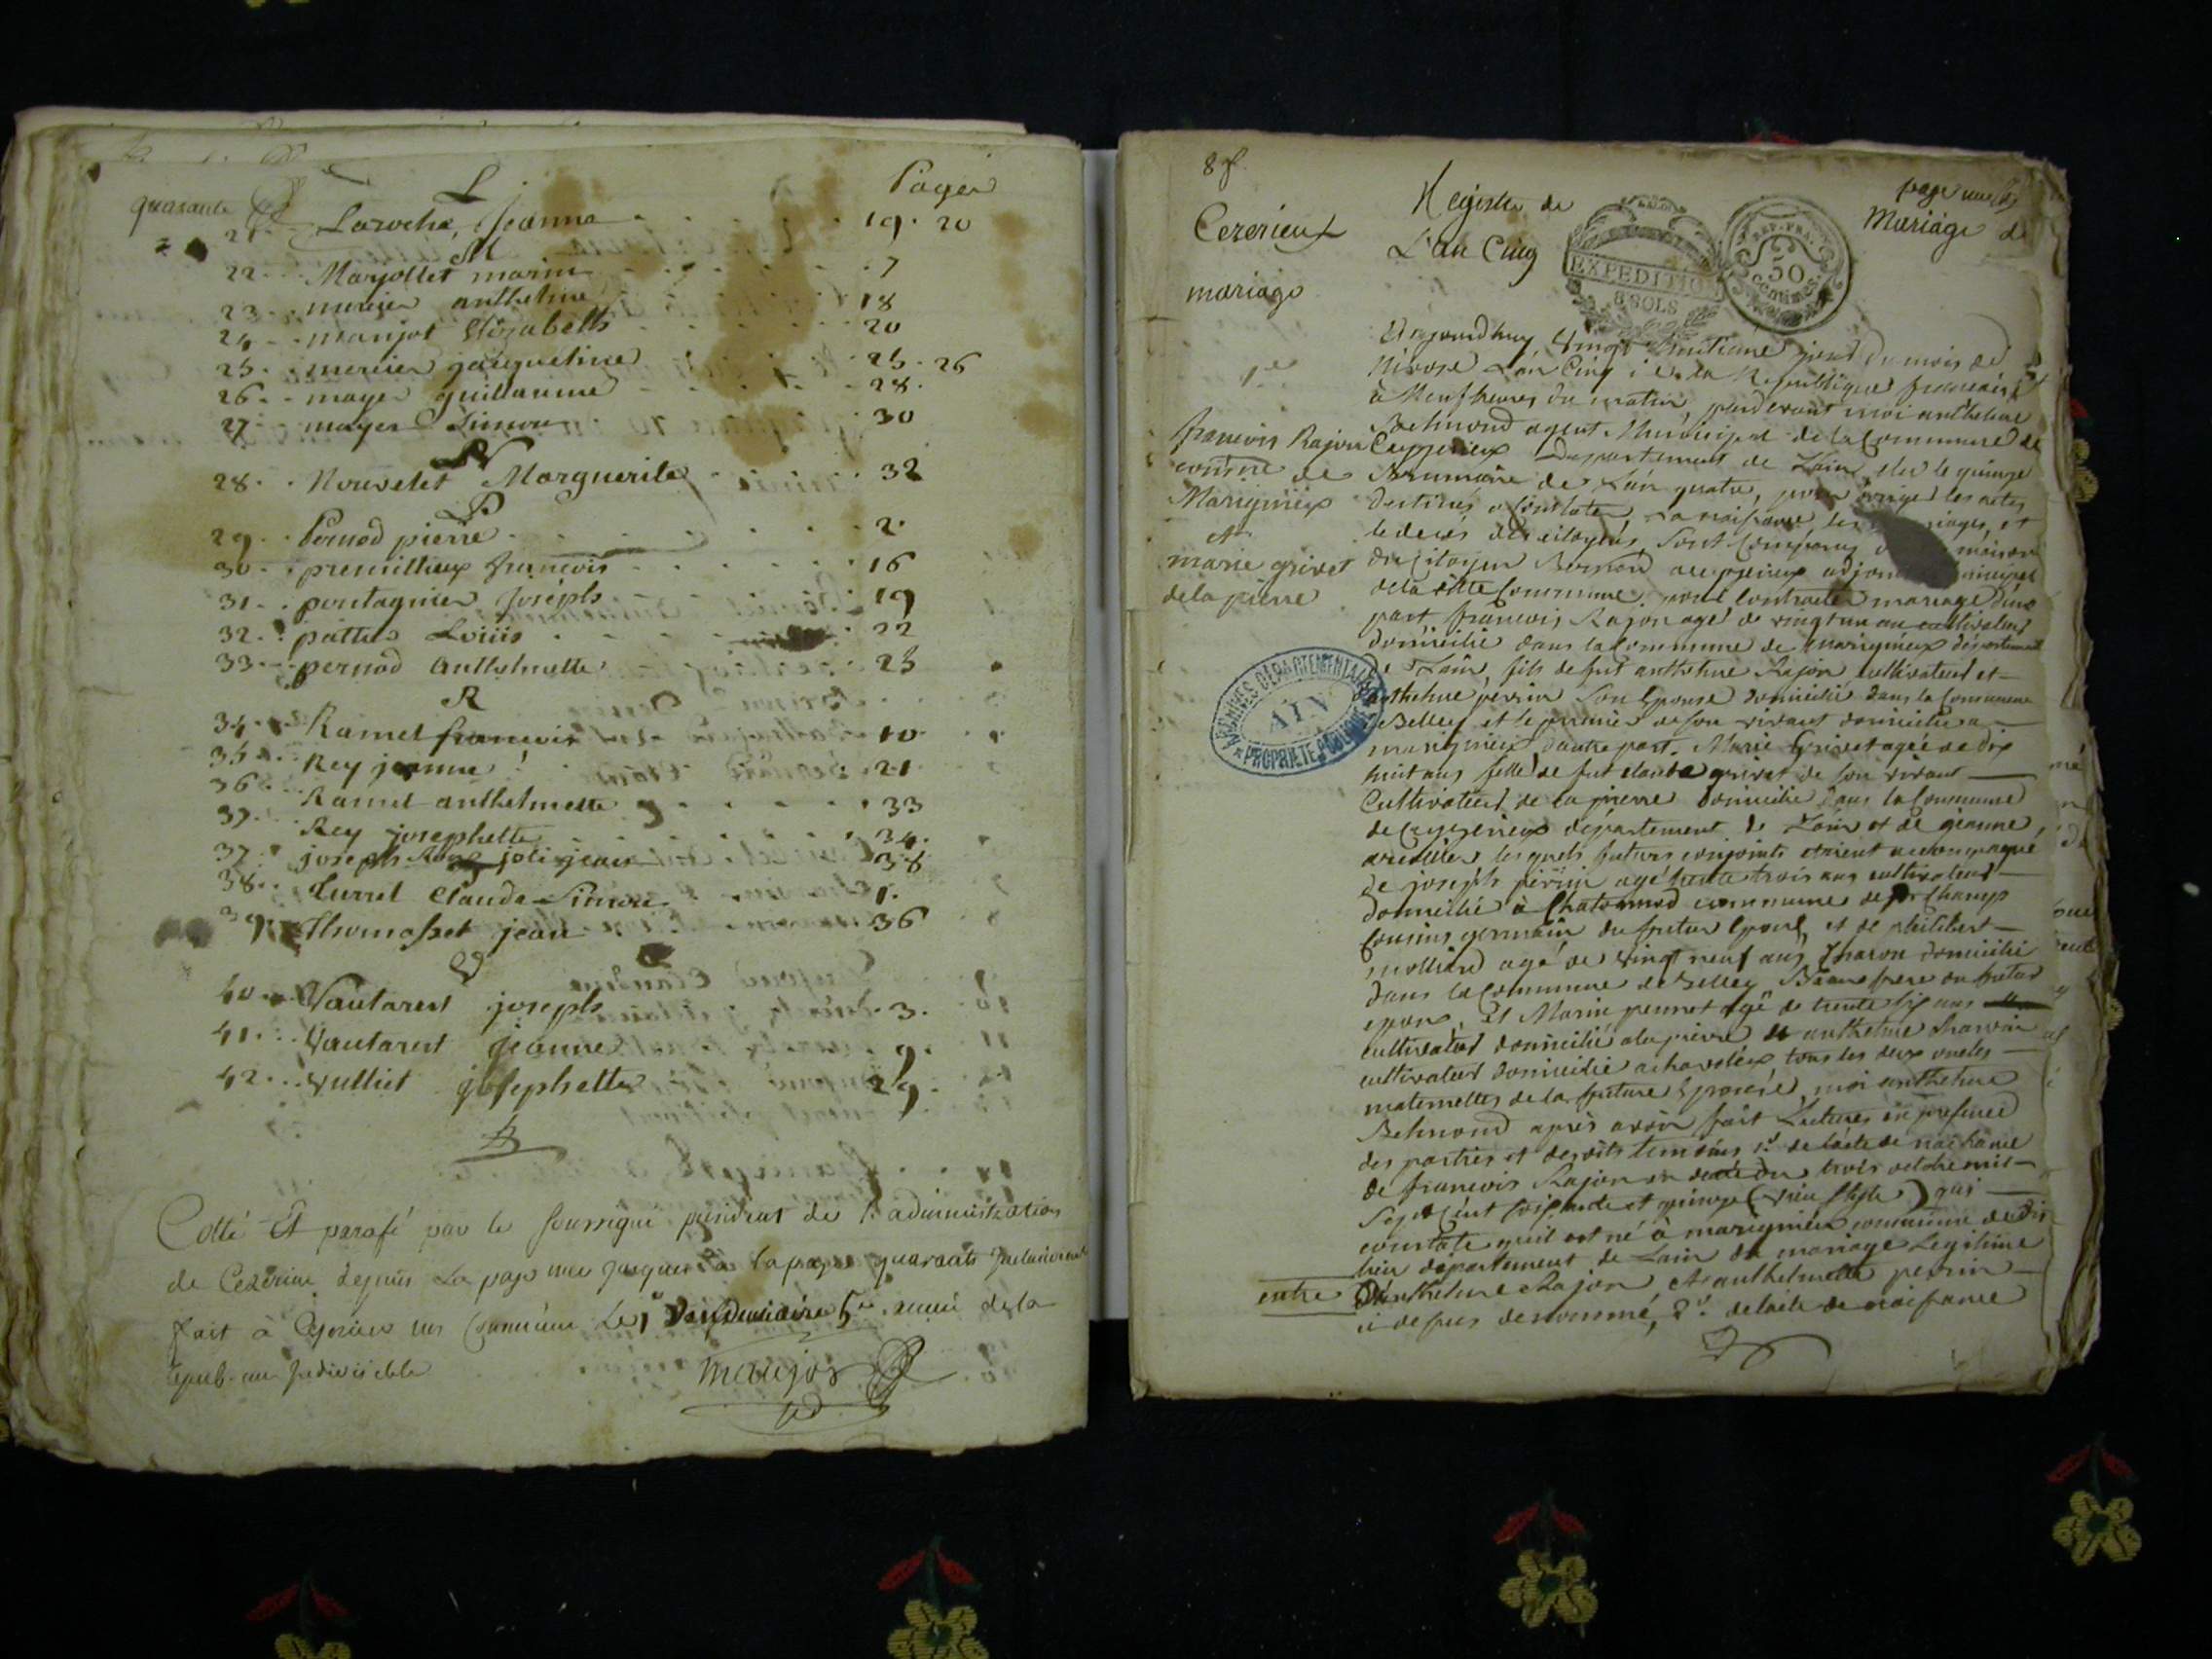 quarante
L
Pages
21. Laroche, Jeanne 19. 20
M
22. Marjollet marin 7
23. mercier anthelme 18
24. manjot Elizabeth 20
25. mercier jacqueline 25. 26
26. mayer guillaume 28.
27. mayer Simon 30
N
28. Nouvelet Marguerite 32
P
29. Pernod pierre 2.
30. premillieux francois 16
31. pontagnier Joseph 19
32. pattus Loüis 22
33. pernod anthelmette 23
R
34. Ramel francois 10.
35. Rey jeanne 21
36. Ramel anthelmette 33
37. Rey josephette 34.
37. joseph joli jean 38
38. Turrel Claude Simon 1.
39. Thomasset jean 36
V
40. Vautaret joseph 3.
41. Vautaret jeanne 9.
42. Vulliet josephette 29.
Cotté Et parafé par le soussigné président de l'administration
de Cezerieu depuis la page une jusques a la page quarante Inclusivement
fait à Cezerieu le 1er Vendemiaire 5e année de la
repub. une Indivisible
manjot
pd.
87.
page une
Cezerieux
Registre de
Mariage de
L'an Cinq
EXPEDITION
8 SOLS
REP. FRA.
50
centimes
mariage
Aujourdhuy vingt huitieme jour du mois de
Nivose L'an Cinq de la Republique francaise
1er
à Neuf heures du matin, pardevant moi anthelme
Belmond agent Municipal de la Commune de
francois Rajon
Ceyzerieux Departement de L'ain élu le quinze
comune de
Brumaire de L'an quatre, pour rediger les actes
Marignieux
destinés a Constater la naissance, les mariages, et
et
le decés des citoyens, sont comparus maison
marie grivet
du Citoyen Bernard adjoint municipal
de la pierre
de la ditte Commune, pour Contracter mariage d'une
part francois Rajon agé de vingt un an cultivateur
domicilié dans la Commune de marignieux département
de L'ain, fils de fut anthelme Rajon cultivateur et
ARCHIVES DEPARTEMENTALES
AIN
PROPRIETE PUBLIQUE
anthelme perrin son Epouse domicilié dans la Commune
de Belley et le premier de son vivant domicilié a
marignieux d'autre part. Marie Grivet agée de dix
huit ans fille de fut claude grivet de son vivant
Cultivateur de la pierre domicilié dans la Commune
de Ceyzerieux département de L'ain et de jeanne
lesquels futurs conjoints étoient accompagné
de joseph perrin agé trente trois ans cultivateur
domicilié à Chatonod commune de
Cousins germain du futur Epoux, et de philibert
molliard agé de vingt neuf ans domicilié
dans la Commune de Belley Beau frere du futur
epoux, Et Marin pernet agé de trente six ans
cultivateur domicilié a la pierre et anthelme
cultivateur domicilié a tous les deux oncles
maternelles de la future Epouse, moi anthelme
Belmond après avoir fait Lecture en presence
des parties et desdits temoins 1.º de l'acte de naissance
de francois Rajon en datte du trois octobre mil
sept Cent soixante et quinze (vieu stile) qui
constate qu'il est né à marignieu commune de dit
lieu département de L'ain du mariage Legitime
entre
D'anthelme Rajon et anthelmette perrin
ci dessus denommé, 2.º de l'acte de naissance